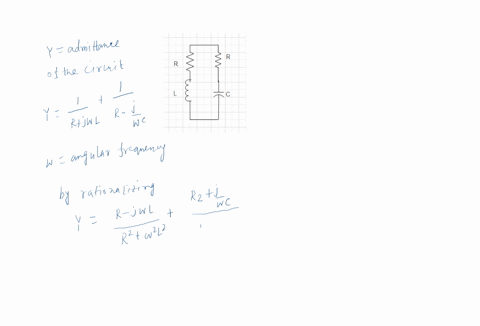 Y = admittance
of the circuit
R R
Y = 1/(R+jwL) + 1/(R - j/wC)
L C
w = angular frequency
by rationalizing
Y = (R - jwL)/(R² + w²L²) + (R2 + j/wC)/